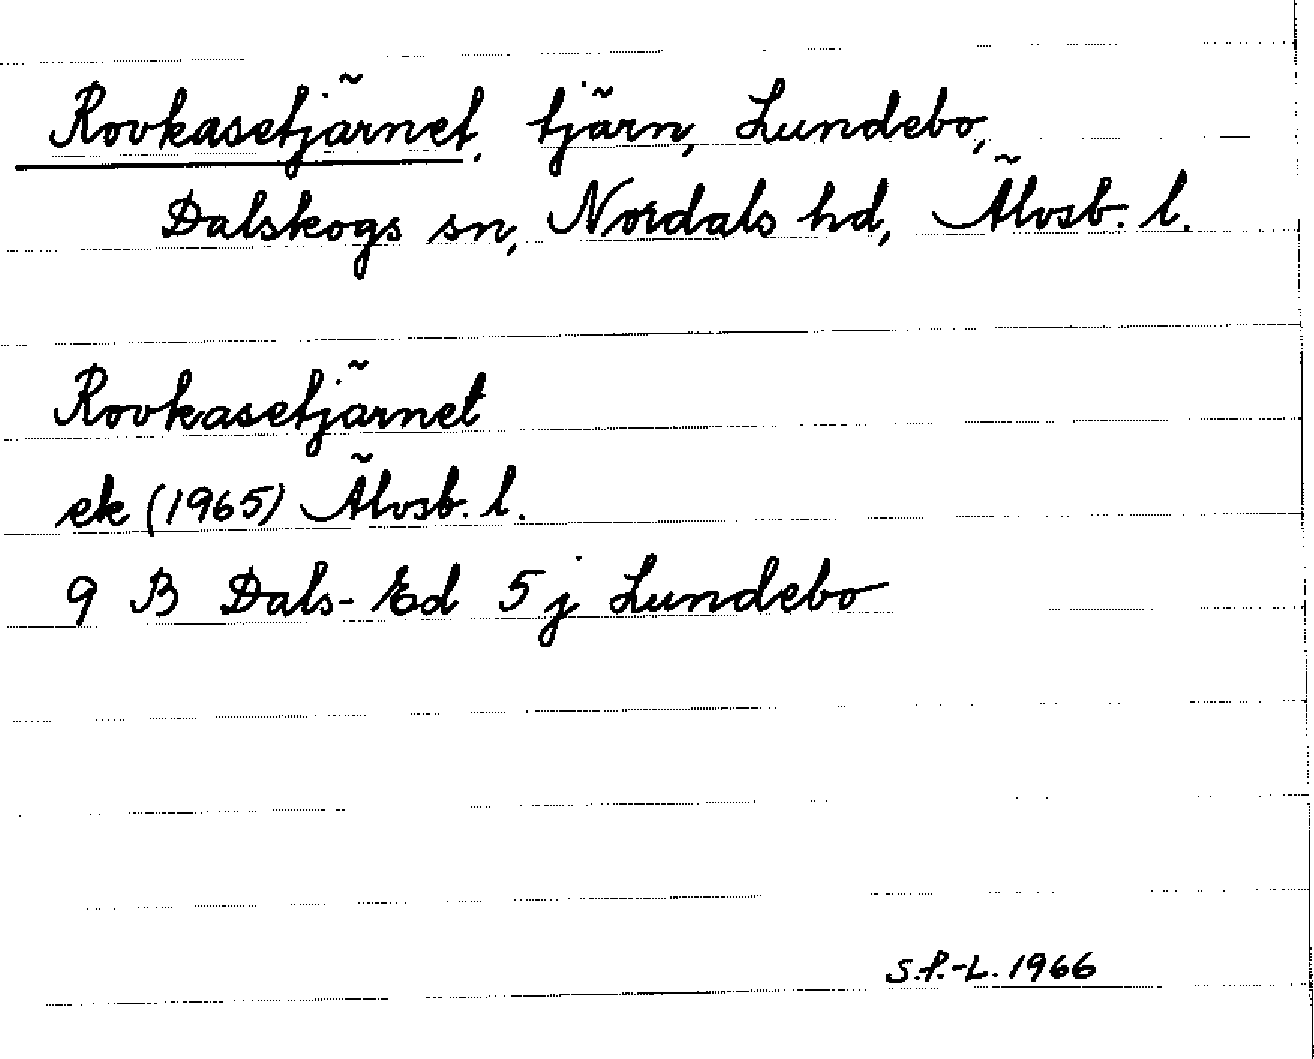 Rovkasetjärnet, tjärn, Lundebo,
Dalskogs sn, Nordals hd, Älvsb. l.
Rovkasetjärnet
ek (1965) Älvsb. l.
9 B Dals-Ed 5 j Lundebo
S.P.-L. 1966